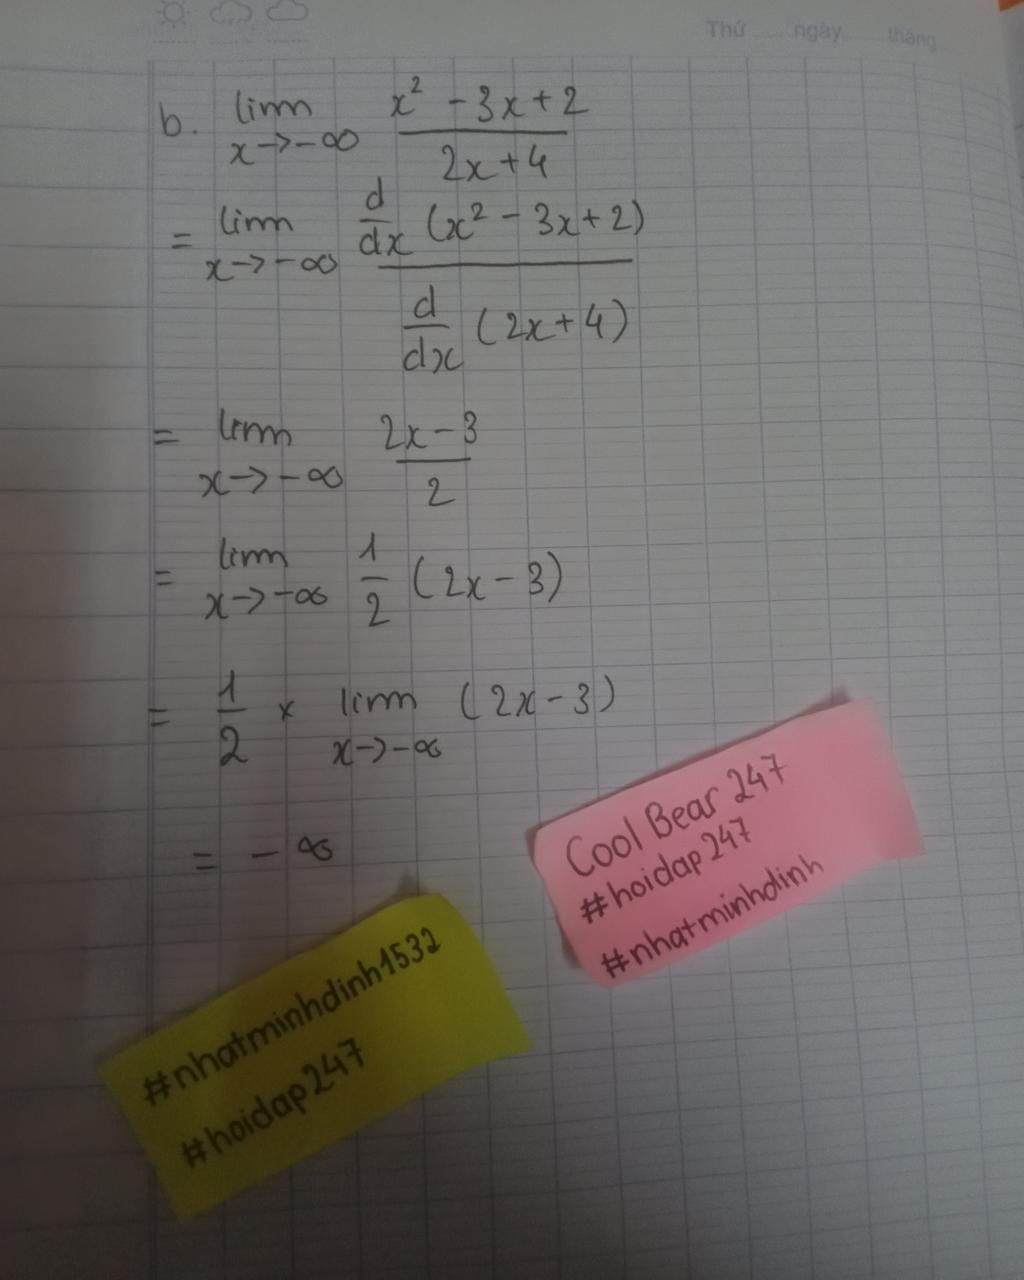 Thứ ngày tháng
b. lim x→-∞ x² - 3x + 2 / 2x + 4
= lim x→-∞ d/dx (x² - 3x + 2) / d/dx (2x + 4)
= lim x→-∞ 2x - 3 / 2
= lim x→-∞ 1/2 (2x - 3)
= 1/2 × lim x→-∞ (2x - 3)
= - ∞
Cool Bear 247
#hoidap247
#nhatminhdinh
#nhatminhdinh1532
#hoidap247